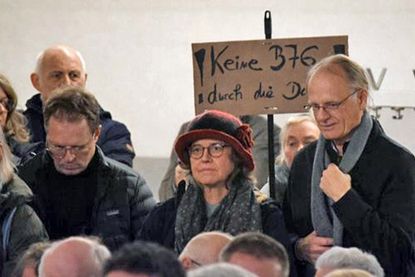 ! Keine B76
durch die Do